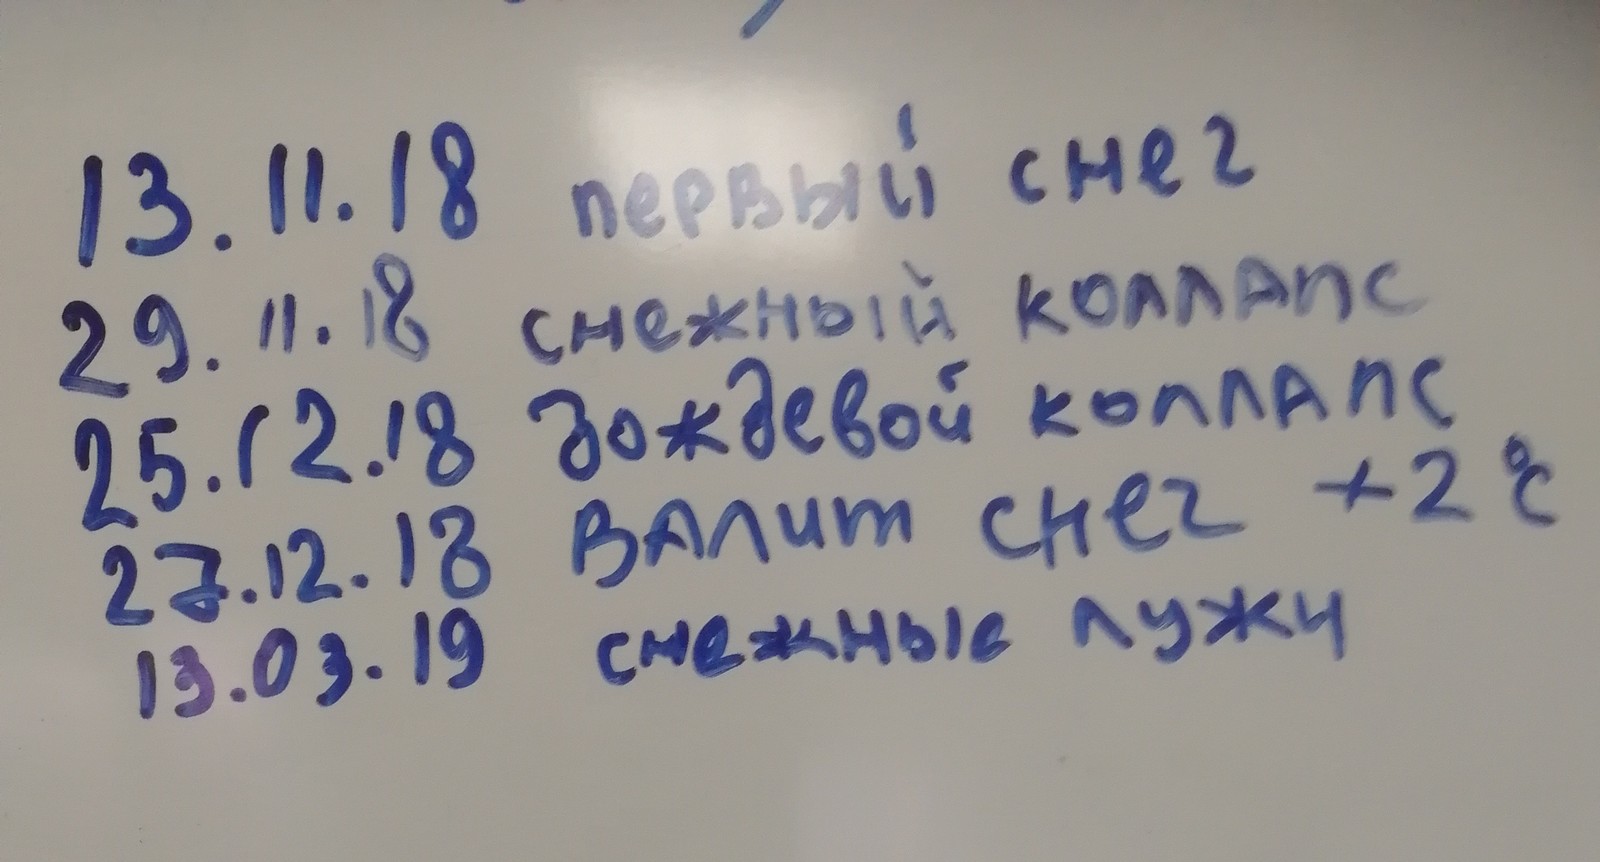 13.11.18 первый снег
29.11.18 снежный коллапс
25.12.18 дождевой коллапс
27.12.18 валит снег +2 °C
13.03.19 снежные лужи